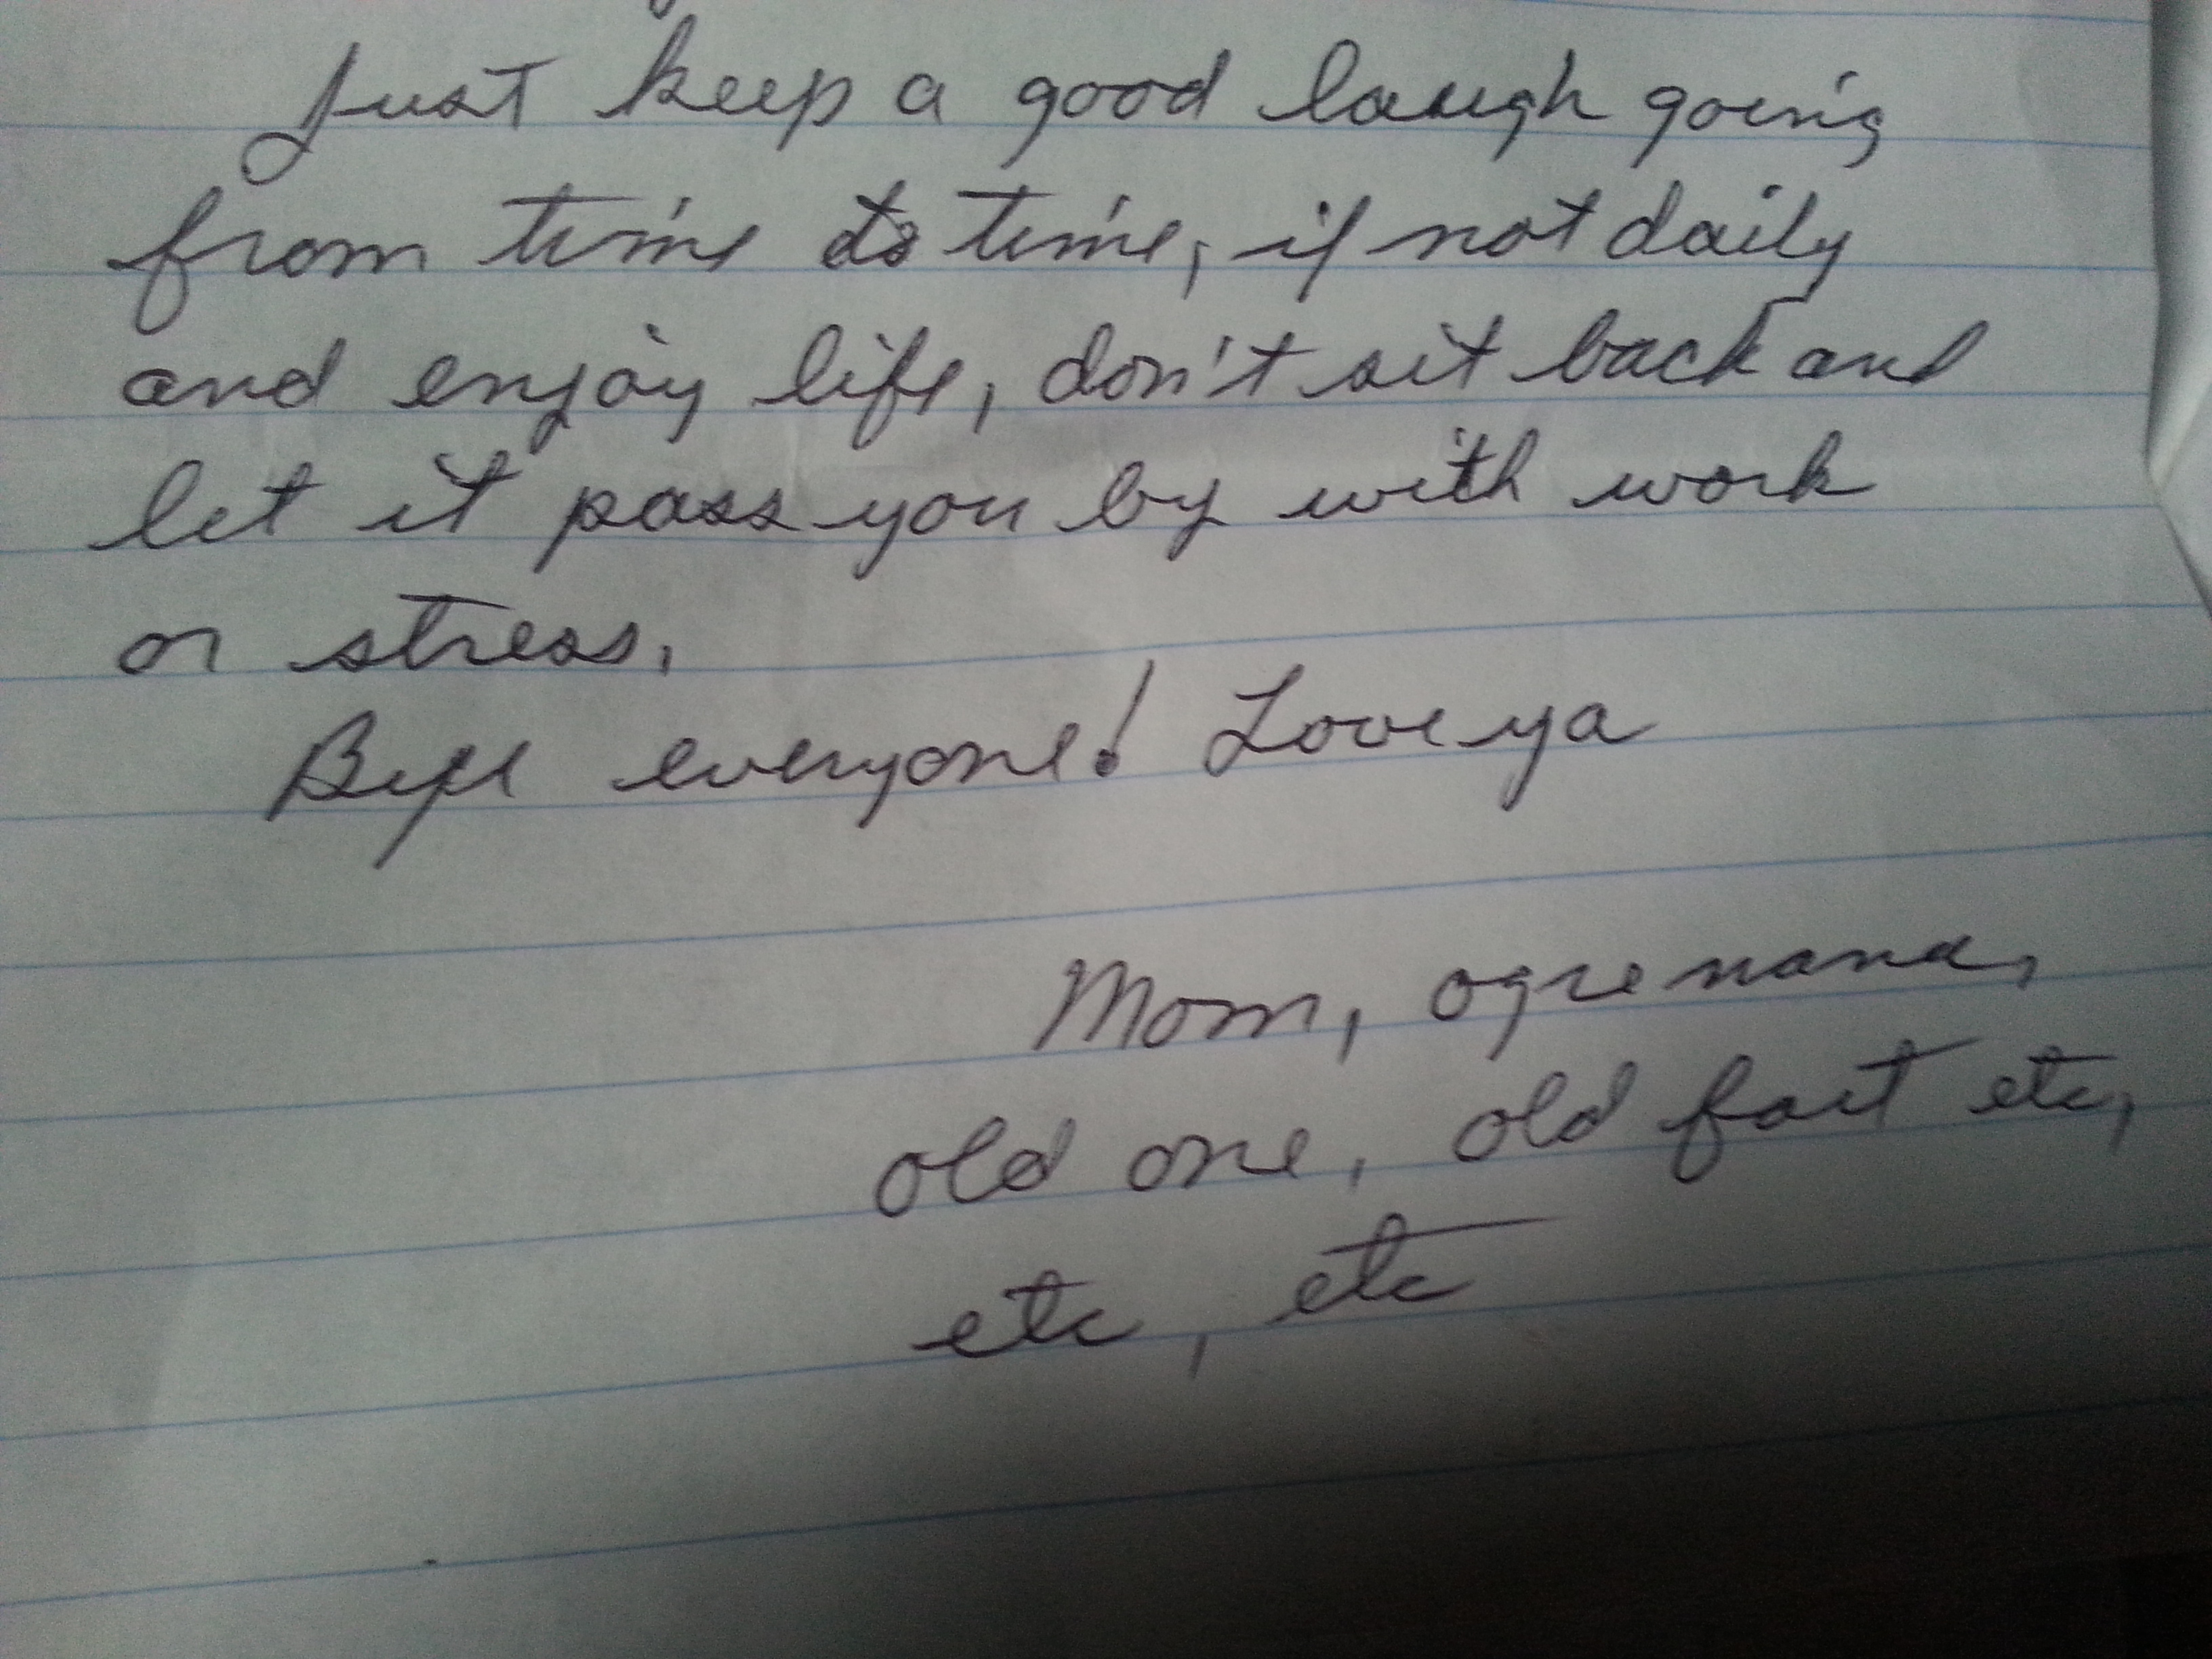 Just keep a good laugh going
from time to time, if not daily
and enjoy life, don't sit back and
let it pass you by with work
or stress.
Bye everyone! Love ya
Mom, ogre nana,
old one, old fart etc,
etc, etc